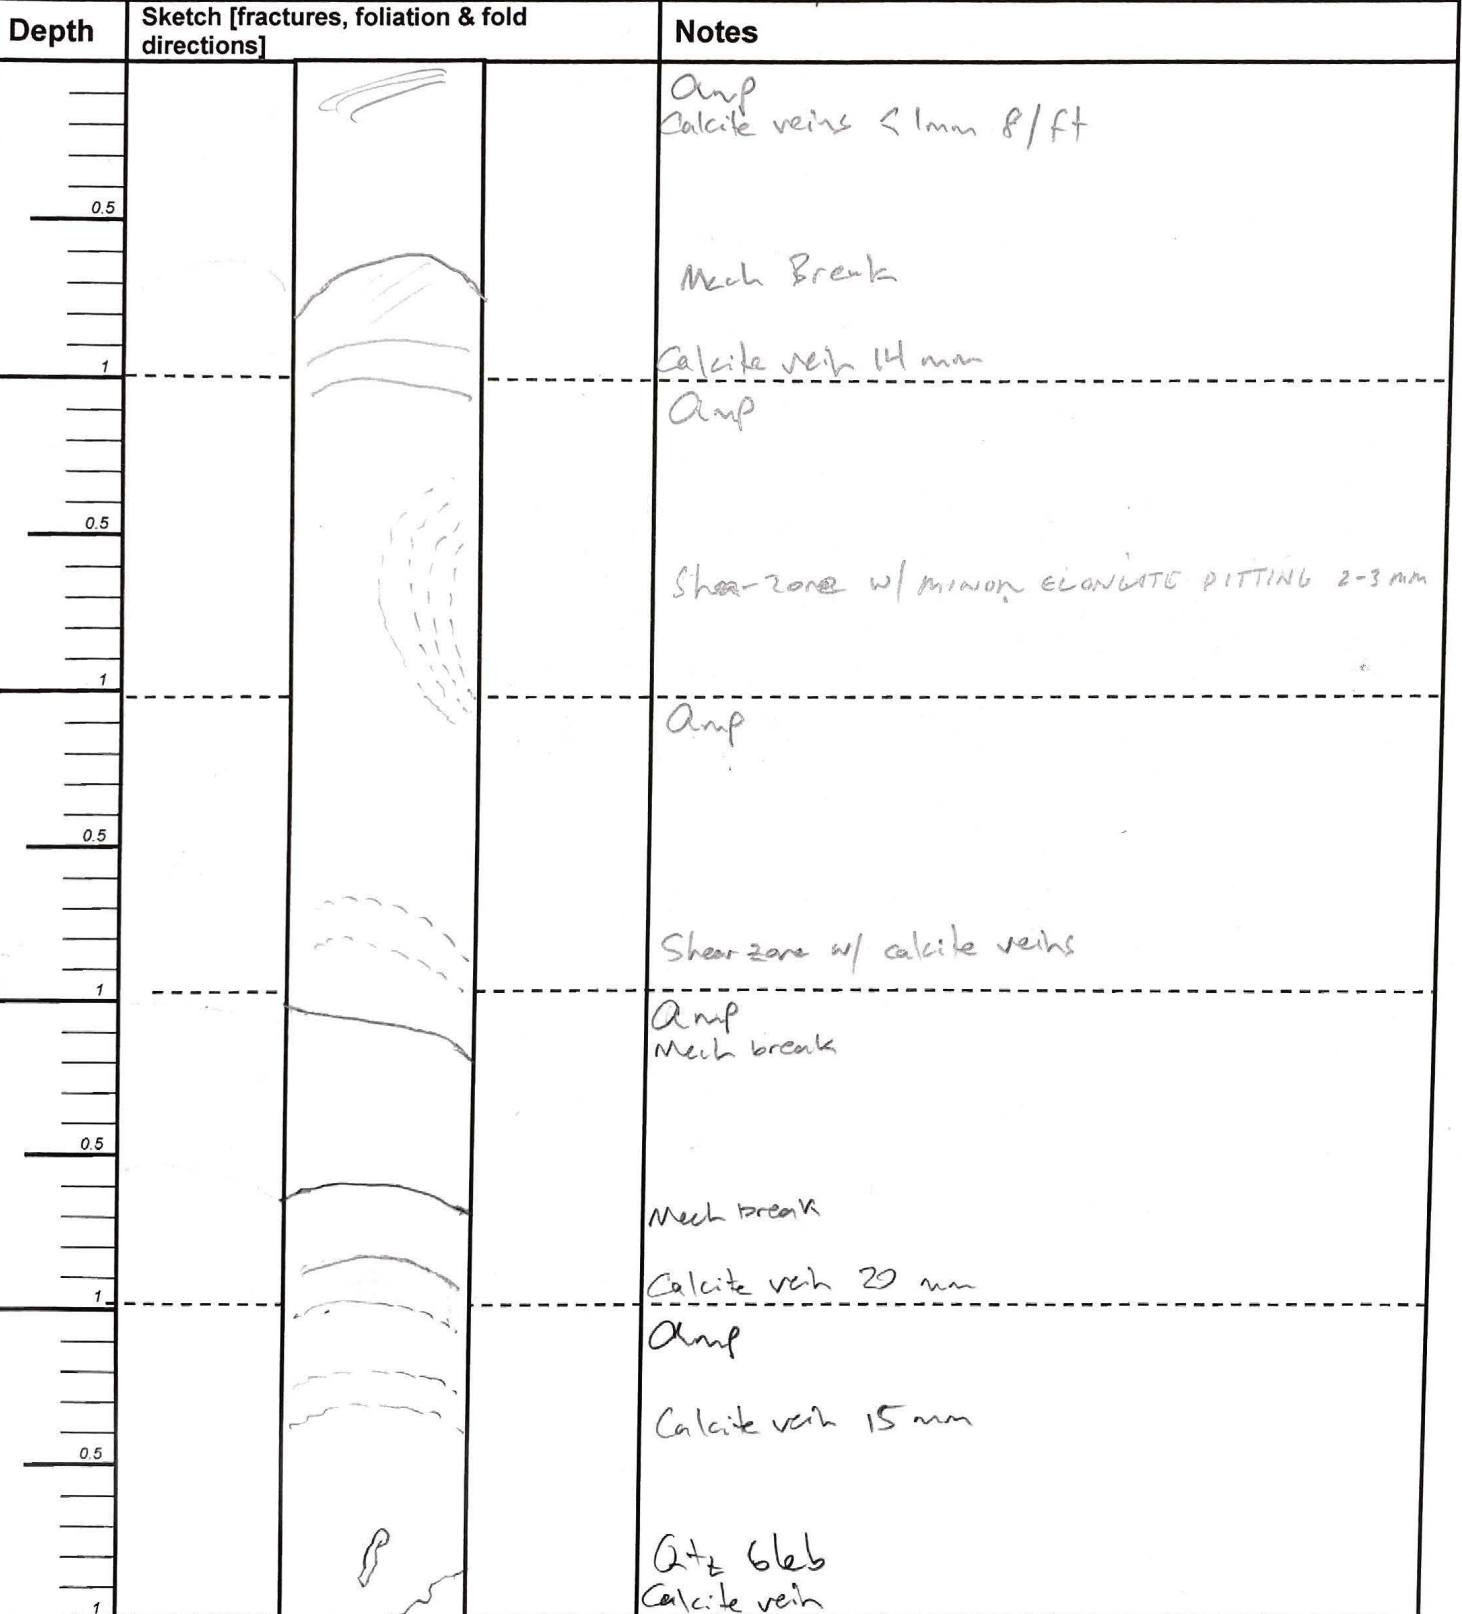 Depth
Sketch [fractures, foliation & fold
directions]
Notes
Amp
Calcite veins < 1mm 8/ft
0.5
Mech Break
Calcite vein 14 mm
1
Amp
0.5
Shear zone w/ MINOR ELONGATE PITTING 2-3 mm
1
Amp
0.5
Shear zone w/ calcite veins
1
Amp
Mech break
0.5
Mech break
Calcite vein 20 mm
1
Amp
Calcite vein 15 mm
0.5
Qtz bleb
Calcite vein
1